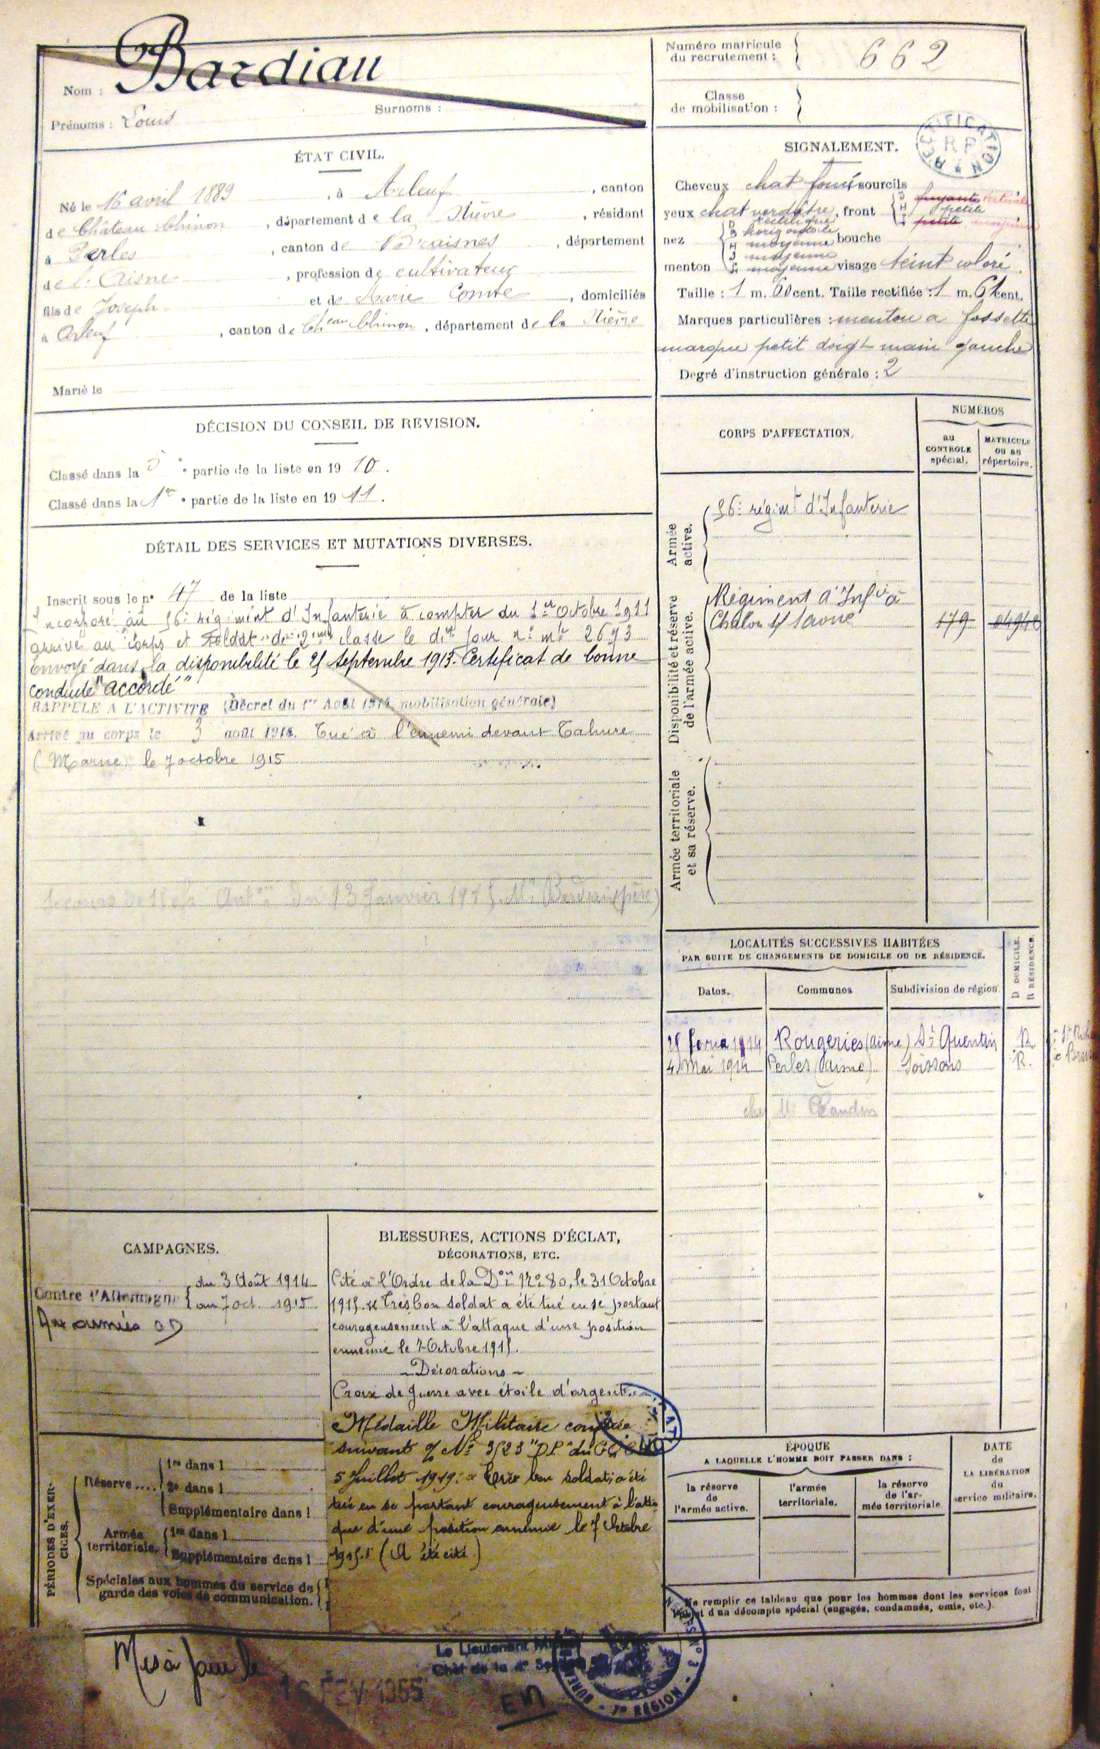 Nom : Bardiau
Prénoms : Louis
Surnoms :
Numéro matricule
du recrutement : 662
Classe
de mobilisation :
ÉTAT CIVIL.
Né le 16 avril 1889, à Arleuf, canton
de Château Chinon, département de la Nièvre, résidant
à Perles, canton de Braisnes, département
de l'Aisne, profession de cultivateur
fils de Joseph et de Marie Comte, domiciliés
à Arleuf, canton de Chau Chinon, département de la Nièvre
Marié le
RECTIFICATION
SIGNALEMENT.
Cheveux chat foncé sourcils
yeux chat verdâtre, front
nez bouche
menton visage teint coloré.
Taille : 1 m. 60 cent. Taille rectifiée : 1 m. 61 cent.
Marques particulières : menton à fossette
marque petit doigt main gauche
Degré d'instruction générale : 2
DÉCISION DU CONSEIL DE REVISION.
Classé dans la 5e partie de la liste en 1910.
Classé dans la 1re partie de la liste en 1911.
DÉTAIL DES SERVICES ET MUTATIONS DIVERSES.
Inscrit sous le n° 47 de la liste
Incorporé au 56e régiment d'Infanterie à compter du 1er octobre 1911
arrivé au corps et soldat de 2me classe le dit jour no mle 2693
Envoyé dans la disponibilité le 25 septembre 1913. Certificat de bonne
conduite "accordé"
RAPPELÉ A L'ACTIVITÉ (Décret du 1er Août 1914, mobilisation générale)
Arrivé au corps le 3 août 1914. Tué à l'ennemi devant Tahure
(Marne) le 7 octobre 1915
Secours de 13 Janvier (père)
CORPS D'AFFECTATION.
NUMÉROS
au
CONTROLE
spécial.
MATRICULE
OU AU
répertoire.
Armée
active.
56e régimt d'Infanterie
Disponibilité et réserve
de l'armée active.
Régiment d'Infie à
Chalon s/ Saone 179
Armée territoriale
et sa réserve.
LOCALITÉS SUCCESSIVES HABITÉES
PAR SUITE DE CHANGEMENTS DE DOMICILE OU DE RÉSIDENCE.
D DOMICILE.
R RÉSIDENCE.
Dates. Communes Subdivision de région
1914 Rougeries (Aisne) St Quentin R
4 Mai 1914 Perles (Aisne) Soissons R.
chez Mr
CAMPAGNES.
Contre l'Allemagne
du 3 Août 1914
au 7 oct. 1915
Aux armées
BLESSURES, ACTIONS D'ÉCLAT,
DÉCORATIONS, ETC.
Cité à l'Ordre de la Don No 280, le 31 Octobre
1915. « Très bon soldat a été tué en se portant
courageusement à l'attaque d'une position
ennemie le 7 Octobre 1915.
- Décorations -
Croix de Guerre avec étoile d'argent.
Médaille Militaire
suivant No 3523 "D" du
5 Juillet 1919 : « Très bon soldat, a été
tué en se portant courageusement à l'atta
que d'une position ennemie le 7 Octobre
1915. » (A été cité.)
PÉRIODES D'EXER-
CICES.
Réserve....
1re dans l
2e dans l
Supplémentaire dans l
Armée
territoriale.
1re dans l
Supplémentaire dans l
Spéciales aux hommes du service de
garde des voies de communication.
ÉPOQUE
A LAQUELLE L'HOMME DOIT PASSER DANS :
la réserve
de
l'armée active.
l'armée
territoriale.
la réserve
de l'ar-
mée territoriale
DATE
de
LA LIBÉRATION
du
service militaire.
Ne remplir ce tableau que pour les hommes dont les services font
l'objet d'un décompte spécial (engagés, condamnés, omis, etc.).
Mis à jour le
16 FEV 1955
Le Lieutenant
Chef de la
7e RÉGION